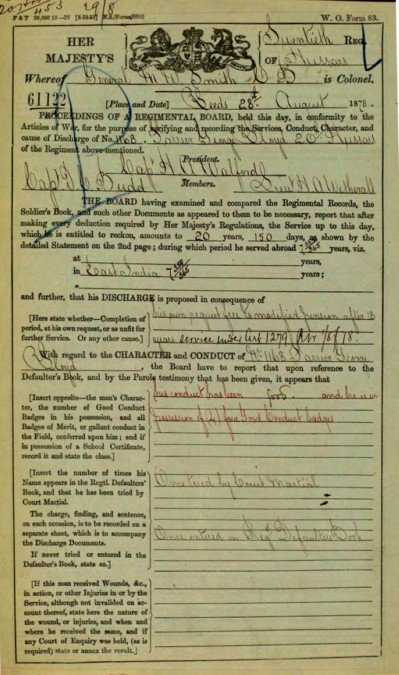 453 29/8
W. O. Form 83.
HER
MAJESTY'S
Twentieth REG.
of Hussars
Whereof General Smith C B is Colonel.
61122
[Place and Date] Leeds 28th August 1878.
PROCEEDINGS OF A REGIMENTAL BOARD, held this day, in conformity to the
Articles of War, for the purpose of verifying and recording the Services, Conduct, Character, and
cause of Discharge of No. 1168 Farrier George Lloyd 20th Hussars
of the Regiment above-mentioned.
President.
Capt
Members.
Capt Lieut
THE BOARD having examined and compared the Regimental Records, the
Soldier's Book, and such other Documents as appeared to them to be necessary, report that after
making every deduction required by Her Majesty's Regulations, the Service up to this day,
which he is entitled to reckon, amounts to 20 years, 150 days, as shown by the
detailed Statement on the 2nd page; during which period he served abroad 7 years, viz.
at years,
in East India 7 years;
and further, that his DISCHARGE is proposed in consequence of
[Here state whether—Completion of
period, at his own request, or as unfit for
further Service. Or any other cause.]
his own request free to modified pension after 18
years service under Art 1279
With regard to the CHARACTER and CONDUCT of No 1168 Farrier George
Lloyd, the Board have to report that upon reference to the
Defaulter's Book, and by the Parole testimony that has been given, it appears that
[Insert opposite—the man's Charac-
ter, the number of Good Conduct
Badges in his possession, and all
Badges of Merit, or gallant conduct in
the Field, conferred upon him; and if
in possession of a School Certificate,
record it and state the class.]
his conduct has been good and he is in
possession of Good Conduct badges
[Insert the number of times his
Name appears in the Regtl. Defaulters'
Book, and that he has been tried by
Court Martial.
The charge, finding, and sentence,
on each occasion, is to be recorded on a
separate sheet, which is to accompany
the Discharge Documents.
If never tried or entered in the
Defaulter's Book, state so.]
Once tried by Court Martial
Once entered in Regl Defaulters Book
[If this man received Wounds, &c.,
in action, or other Injuries in or by the
Service, although not invalided on ac-
count thereof, state here the nature of
the wound, or injuries, and when and
where he received the same, and if
any Court of Enquiry was held, (as is
required) state or annex the result.]